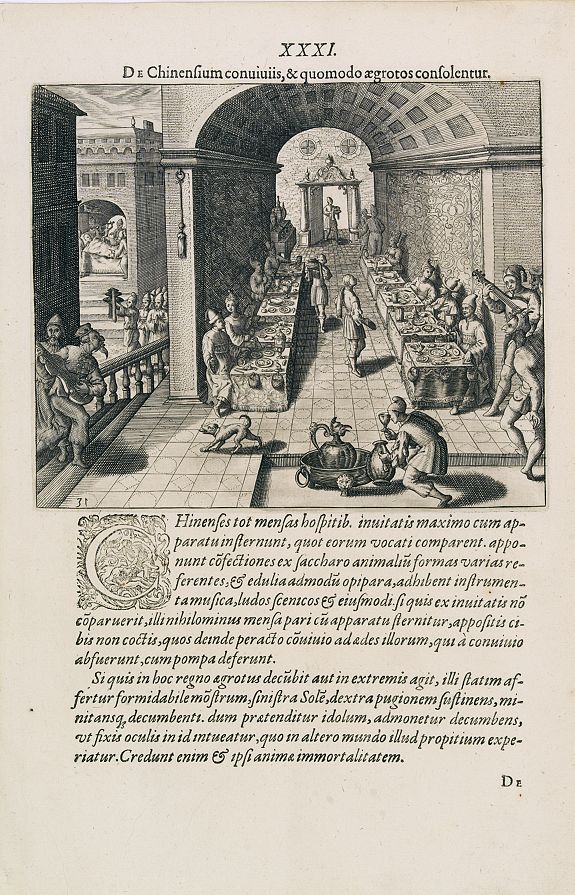 XXXI.
DE Chinensium conuiuiis, & quomodo ægrotos consolentur.
31
CHinenses tot mensas hospitib. inuitatis maximo cum ap-
paratu insternunt, quot eorum vocati comparent. appo-
nunt cōfectiones ex saccharo animaliū formas varias re-
ferentes, & edulia admodū opipara, adhibent instrumen-
ta musica, ludos scenicos & eiusmodi. si quis ex inuitatis nō
cōparuerit, illi nihilominus mensa pari cū apparatu sternitur, appositis ci-
bis non coctis, quos deinde peracto cōuiuio ad ædes illorum, qui à conuiuio
abfuerunt, cum pompa deferunt.
Si quis in hoc regno ægrotus decūbit aut in extremis agit, illi statim af-
fertur formidabile mōstrum, sinistra Solē, dextra pugionem sustinens, mi-
nitansq́; decumbenti. dum prætenditur idolum, admonetur decumbens,
vt fixis oculis in id intueatur, quo in altero mundo illud propitium expe-
riatur. Credunt enim & ipsi animæ immortalitatem.
DE